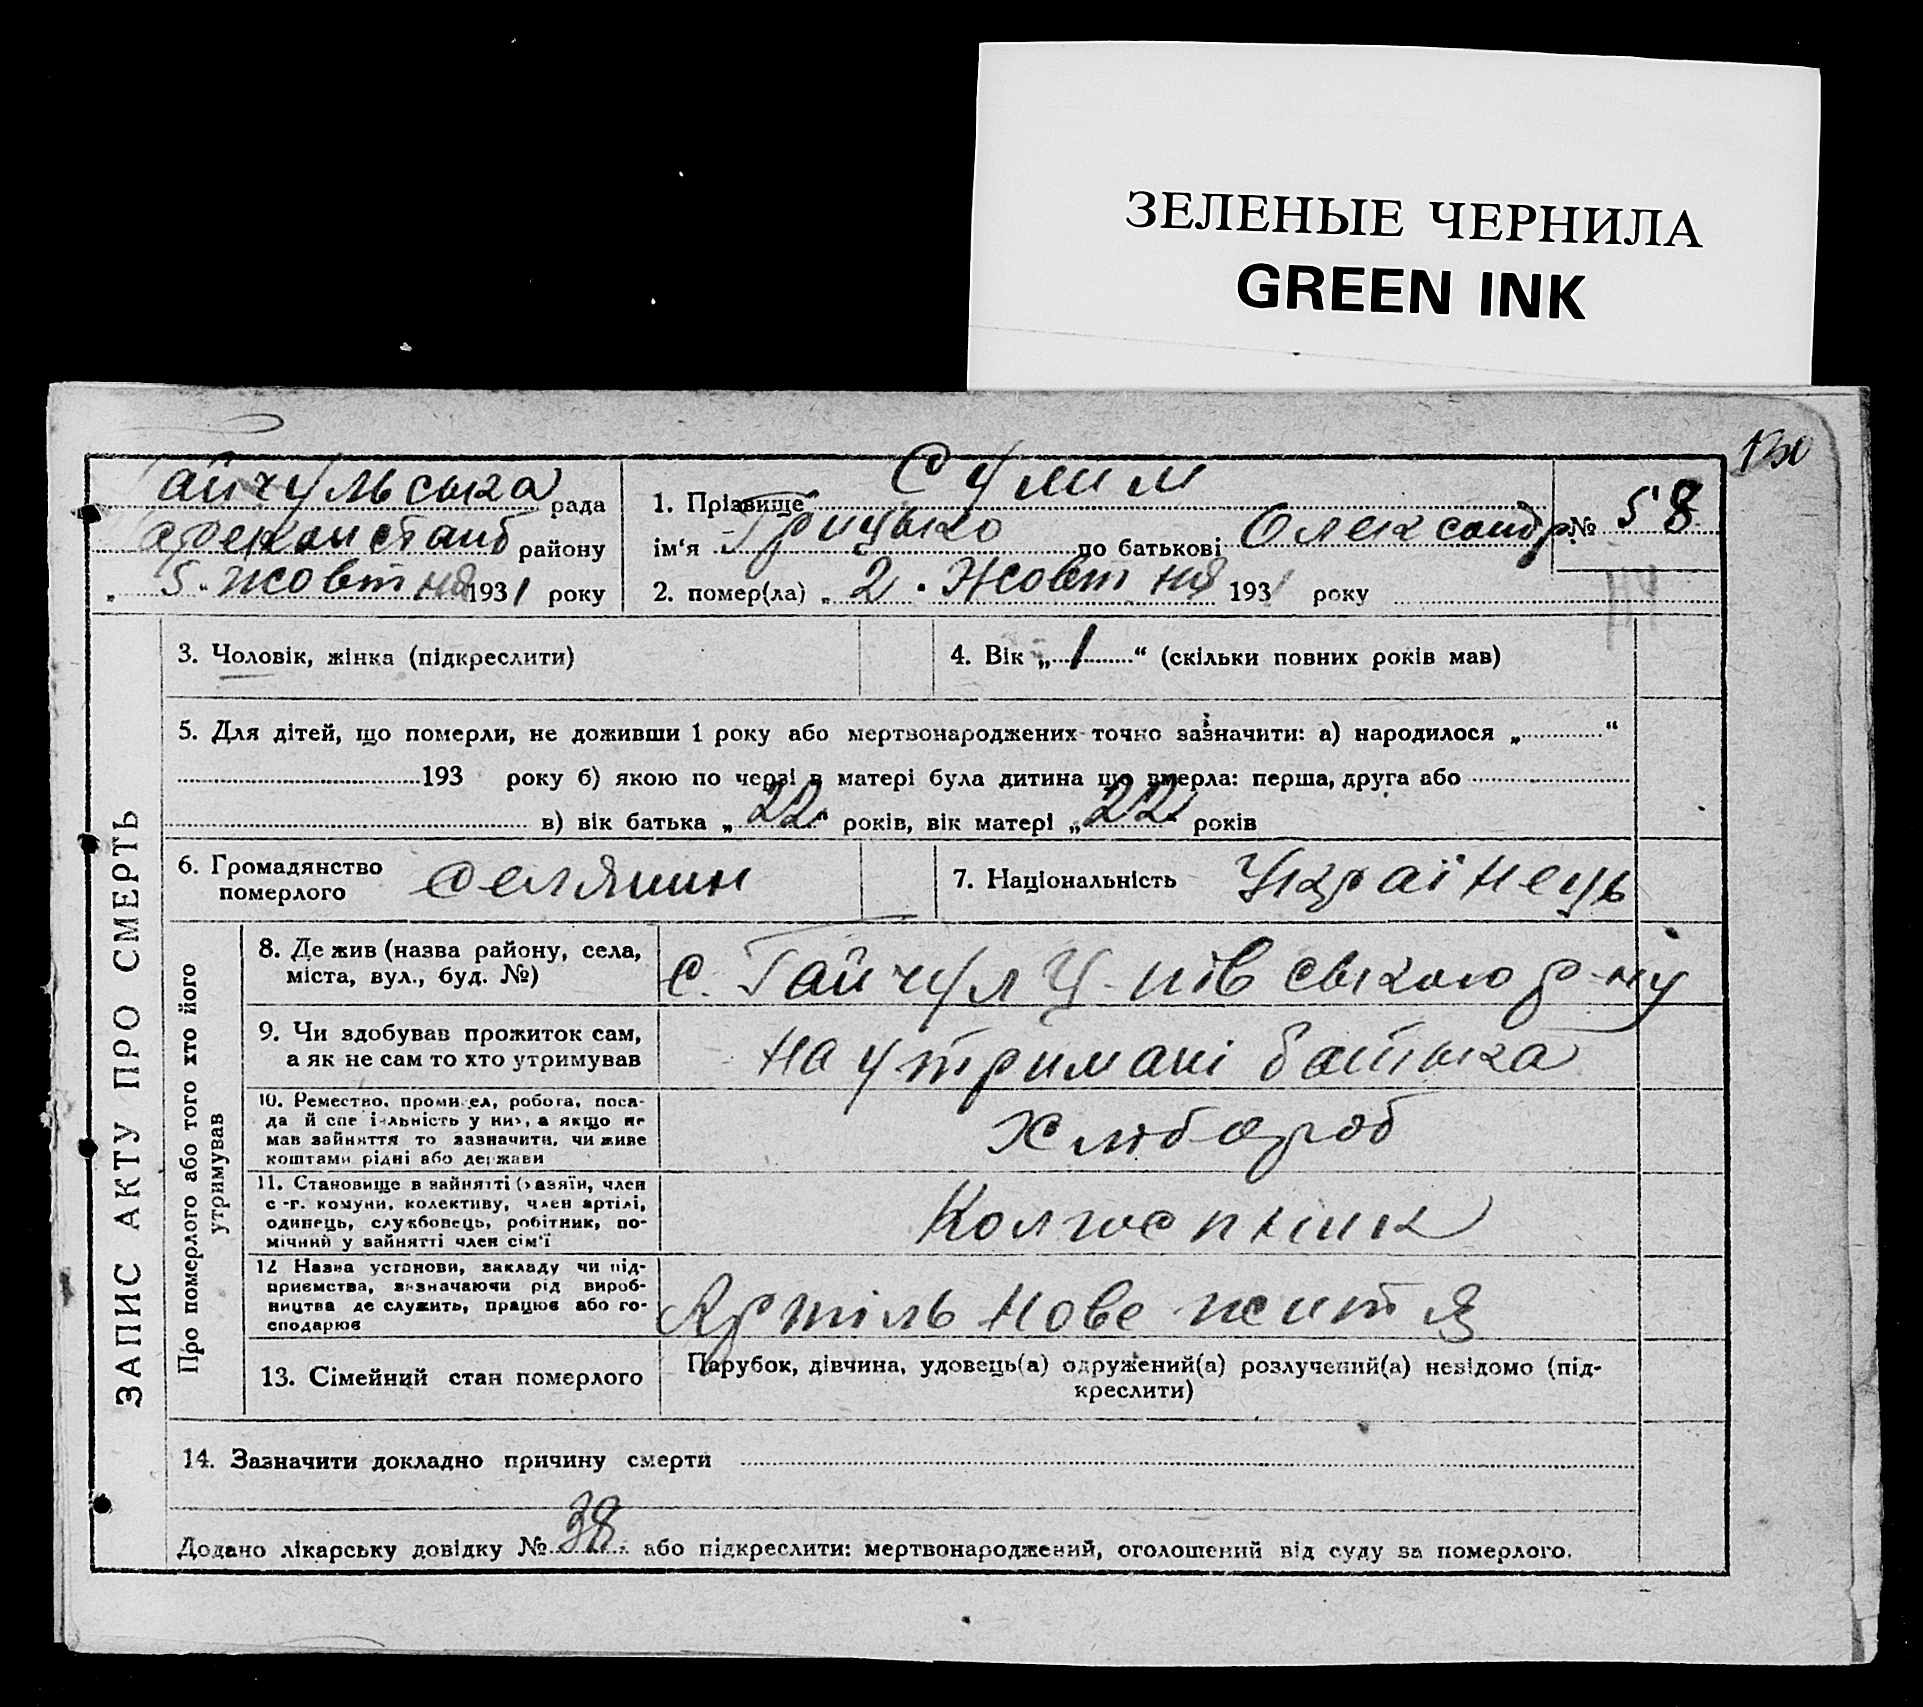 ЗЕЛЕНЫЕ ЧЕРНИЛА
GREEN INK
Гайчульська рада
району
„ 5. жовтня 1931 року
1. Прізвище Сумим
ім'я Грицько по батькові Олександр.
№ 58
2. помер(ла) „ 2. Жовтня 1931 року
ЗАПИС АКТУ ПРО СМЕРТЬ
3. Чоловік, жінка (підкреслити)
4. Вік „ 1 “ (скільки повних років мав)
5. Для дітей, що померли, не доживши 1 року або мертвонароджених точно зазначити: а) народилося „ “
193 року б) якою по черзі в матері була дитина що вмерла: перша, друга або
в) вік батька „ 22 “ років, вік матері „ 22 “ років
6. Громадянство померлого селянин
7. Національність Українець
Про померлого або того хто його утримував
8. Де жив (назва району, села,
міста, вул., буд. №)
с. Гайчул Ц-півського р-ну
9. Чи здобував прожиток сам,
а як не сам то хто утримував
на утримані батька
10. Ремество, промисел, робота, поса-
да й спеціяльність у них, а якщо не
мав зайняття то зазначити, чи живе
коштами рідні або держави
Хлібороб
11. Становище в зайнятті (хазяїн, член
с.-г. комуни, колективу, член артілі,
одинець, службовець, робітник, по-
мічний у зайнятті член сім'ї
Колгоспник
12 Назва установи, закладу чи під-
приємства, зазначаючи рід вироб-
ництва де служить, працює або го-
сподарює
Артіль Нове життя
13. Сімейний стан померлого
Парубок, дівчина, удовець(а) одружений(а) розлучений(а) невідомо (під-
креслити)
14. Зазначити докладно причину смерти
Додано лікарську довідку № 38 або підкреслити: мертвонароджений, оголошений від суду за померлого.